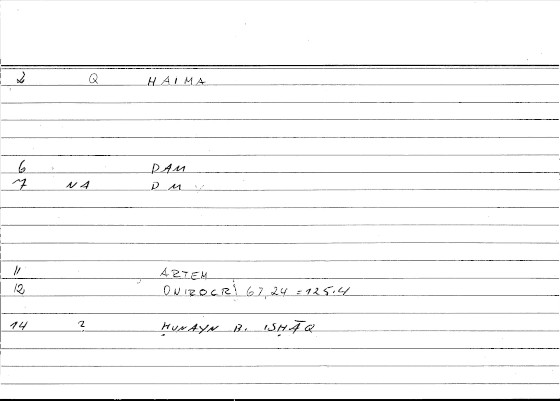 2 Q HAIMA
6 DAM
7 NA D M
11 ARTEM
12 ONIROCR. 67,24 = 125.4
14 2 ḤUNAYN B. ISḤĀQ